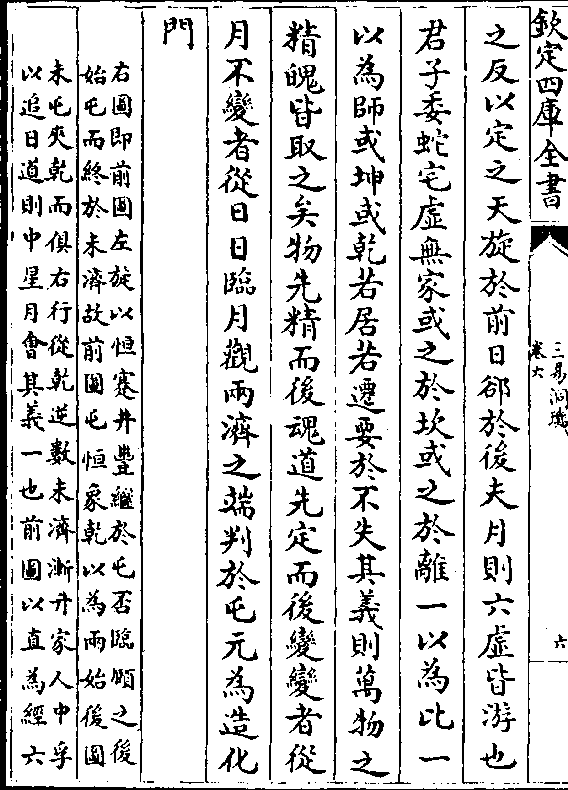 欽定四庫全書
三易洞璣
卷六
六
之反以定之天旋於前日郤於後夫月則六虛皆游也
君子委蛇宅虛無家或之於坎或之於離一以為比一
以為師或坤或乾若居若遷要於不失其義則萬物之
精魄皆取之矣物先精而後魂道先定而後變變者從
月不變者從日日臨月觀兩濟之端判於屯元為造化
門
右圖即前圖左旋以恒蹇井豐繼於屯否臨頤之後
始屯而終於未濟故前圖屯恒象乾以為兩始後圖
未屯夾乾而俱右行從乾逆數未濟漸升家人中孚
以追日道則中星月會其義一也前圖以直為經六